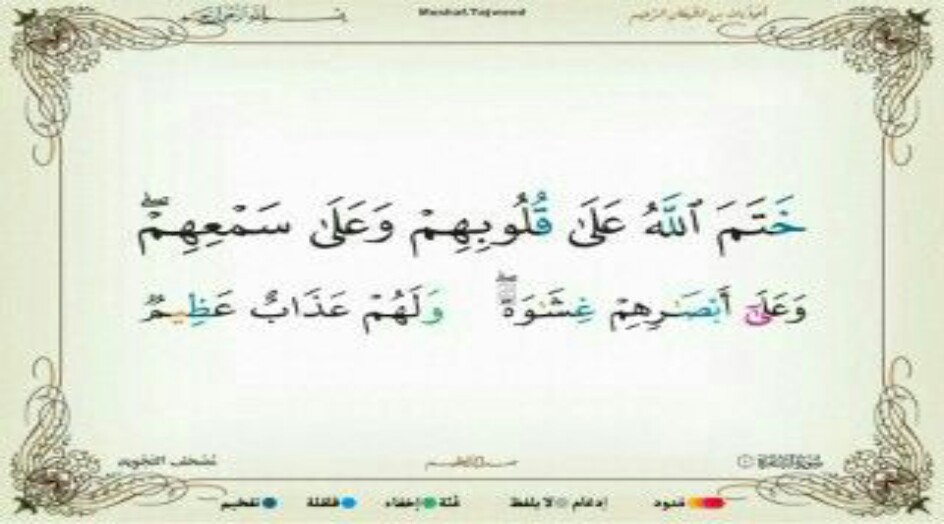 أعوذ بالله من الشيطان الرجيم
Mushaf.Tajweed
بسم الله الرحمن الرحيم
خَتَمَ ٱللَّهُ عَلَىٰ قُلُوبِهِمْ وَعَلَىٰ سَمْعِهِمْۖ
وَعَلَىٰٓ أَبْصَـٰرِهِمْ غِشَـٰوَةٌۖ وَلَهُمْ عَذَابٌ عَظِيمٌ
سورة البقرة
صدق الله العظيم
مصحف التجويد
مدود إدغام لا يلفظ غنة إخفاء قلقلة تفخيم